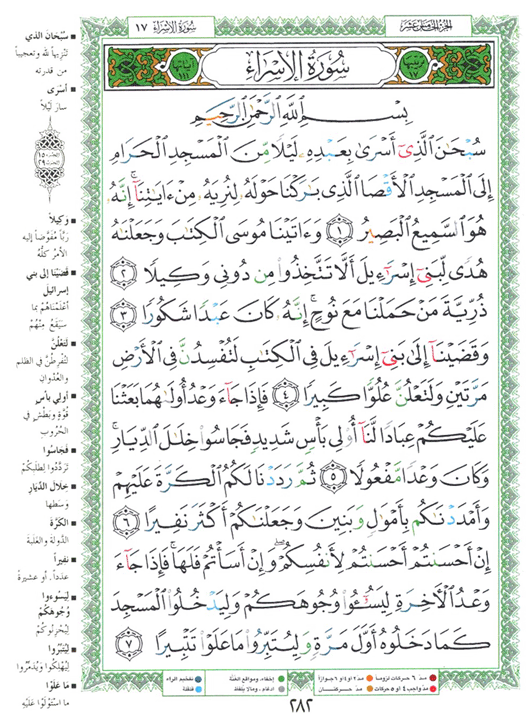 الجزء الخامس عشر
سُورَةُ الْإِسْرَاءِ ١٧
ترتيبها ١٧
سُورَةُ الإِسْرَاءِ
آياتها ١١١
بِسْمِ اللَّهِ الرَّحْمَٰنِ الرَّحِيمِ
سُبْحَٰنَ الَّذِي أَسْرَىٰ بِعَبْدِهِ لَيْلًا مِّنَ الْمَسْجِدِ الْحَرَامِ
إِلَى الْمَسْجِدِ الْأَقْصَا الَّذِي بَٰرَكْنَا حَوْلَهُ لِنُرِيَهُ مِنْ ءَايَٰتِنَا ۚ إِنَّهُ
هُوَ السَّمِيعُ الْبَصِيرُ ١ وَءَاتَيْنَا مُوسَى الْكِتَٰبَ وَجَعَلْنَٰهُ
هُدًى لِّبَنِي إِسْرَٰٓءِيلَ أَلَّا تَتَّخِذُوا مِن دُونِي وَكِيلًا ٢
ذُرِّيَّةَ مَنْ حَمَلْنَا مَعَ نُوحٍ ۚ إِنَّهُ كَانَ عَبْدًا شَكُورًا ٣
وَقَضَيْنَا إِلَىٰ بَنِي إِسْرَٰٓءِيلَ فِي الْكِتَٰبِ لَتُفْسِدُنَّ فِي الْأَرْضِ
مَرَّتَيْنِ وَلَتَعْلُنَّ عُلُوًّا كَبِيرًا ٤ فَإِذَا جَآءَ وَعْدُ أُولَىٰهُمَا بَعَثْنَا
عَلَيْكُمْ عِبَادًا لَّنَا أُولِي بَأْسٍ شَدِيدٍ فَجَاسُوا خِلَٰلَ الدِّيَارِ ۚ
وَكَانَ وَعْدًا مَّفْعُولًا ٥ ثُمَّ رَدَدْنَا لَكُمُ الْكَرَّةَ عَلَيْهِمْ
وَأَمْدَدْنَٰكُم بِأَمْوَٰلٍ وَبَنِينَ وَجَعَلْنَٰكُمْ أَكْثَرَ نَفِيرًا ٦
إِنْ أَحْسَنتُمْ أَحْسَنتُمْ لِأَنفُسِكُمْ ۖ وَإِنْ أَسَأْتُمْ فَلَهَا ۚ فَإِذَا جَآءَ
وَعْدُ الْآخِرَةِ لِيَسُـُٔوا وُجُوهَكُمْ وَلِيَدْخُلُوا الْمَسْجِدَ
كَمَا دَخَلُوهُ أَوَّلَ مَرَّةٍ وَلِيُتَبِّرُوا مَا عَلَوْا تَتْبِيرًا ٧
■ سُبْحَانَ الذي
تَنْزيهاً لله وتعجيباً
من قدرته
■ أسْرَى
سارَ لَيْلاً
■ وكيلاً
ربّاً مُفَوَّضاً إليه
الأمْرُ كُلُّه
■ قَضَيْنا إلى بني
إسرائيل
أعْلَمْناهُمْ بما
سَيَقَعُ مِنْهُمْ
■ لَتَعْلُنَّ
لَتُفْرِطُنَّ في الظلمِ
والعُدْوانِ
■ أولي بأس
قُوَّةٍ وبَطْشٍ في
الحُرُوب
■ فَجَاسُوا
تَرَدَّدُوا لِطَلَبِكُمْ
■ خِلَالَ الدِّيَارِ
وَسَطَها
■ الكَرَّةَ
الدولةَ والغَلَبَةَ
■ نَفيراً
عدداً، أو عشيرةً
■ لِيَسُوءُوا
وُجُوهَكُمْ
لِيُحْزِنُوكُمْ
■ لِيُتَبِّرُوا
لِيُهْلِكوا ويُدَمِّروا
■ مَا عَلَوْا
ما اسْتَوْلَوْا عَلَيْهِ
مد ٦ حركات لزوماً
مد ٢ أو ٤ أو ٦ جوازاً
مد واجب ٤ أو ٥ حركات
مد حركتان
إخفاء، ومواقع الغنة
إدغام، وما لا يلفظ
تفخيم الراء
قلقلة
٢٨٢